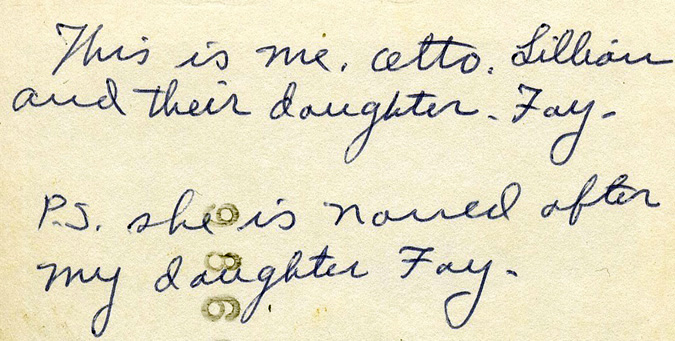 This is me. Otto. Lillian
and their daughter. Fay.
P.S. she is named after
my daughter Fay.